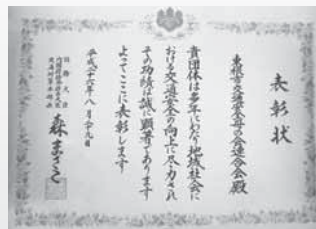 表彰状
東松山交通安全母の会連合会殿
貴団体は多年にわたり地域社会に
おける交通安全の向上に尽力され
その功績は誠に顕著であります
よってここに表彰します
平成二十六年八月二十九日
国務大臣
森まさこ